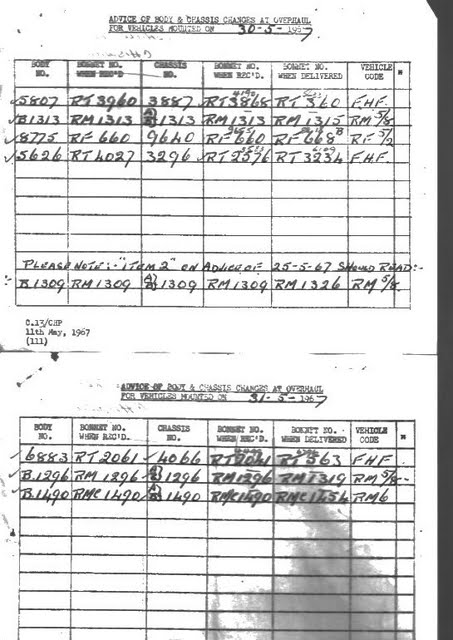 ADVICE OF BODY & CHASSIS CHANGES AT OVERHAUL
FOR VEHICLES MOUNTED ON 30-5-1967
BODY NO. BONNET NO. WHEN REC'D CHASSIS NO. BONNET NO. WHEN REC'D. BONNET NO. WHEN DELIVERED VEHICLE CODE
5807 RT3960 3887 RT3868 RT 360 FHF.
B1313 RM 1313 1313 RM 1313 RM 1315 RM 5/8
8775 RF 660 9640 RF 660 RF 668 B RF 5/2
5626 RT4027 3296 RT2576 RT3234 FHF.
PLEASE NOTE:- "ITEM 2" ON ADVICE OF 25-5-67 SHOULD READ:-
B.1309 RM 1309 1309 RM 1309 RM 1326 RM 5/8
C.13/CHP
11th May, 1967
(111)
ADVICE OF BODY & CHASSIS CHANGES AT OVERHAUL
FOR VEHICLES MOUNTED ON 31-5-1967
BODY NO. BONNET NO. WHEN REC'D. CHASSIS NO. BONNET NO. WHEN REC'D. BONNET NO. WHEN DELIVERED VEHICLE CODE
6883 RT2061 4066 RT2041 RT 563 FHF
B.1296 RM 1296 1296 RM1296 RM1319 RM 5/8
B1490 RMC1490 1490 RMC1490 RMC1454 RM6